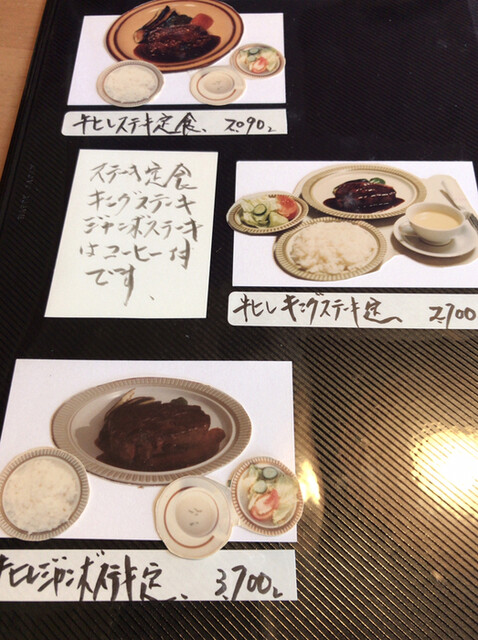 牛ヒレステーキ定食、 2,090-
ステーキ定食
キングステーキ
ジャンボステーキ
はコーヒー付
です、
牛ヒレキングステーキ定、 2,700
牛ヒレジャンボステーキ定、 3,700-